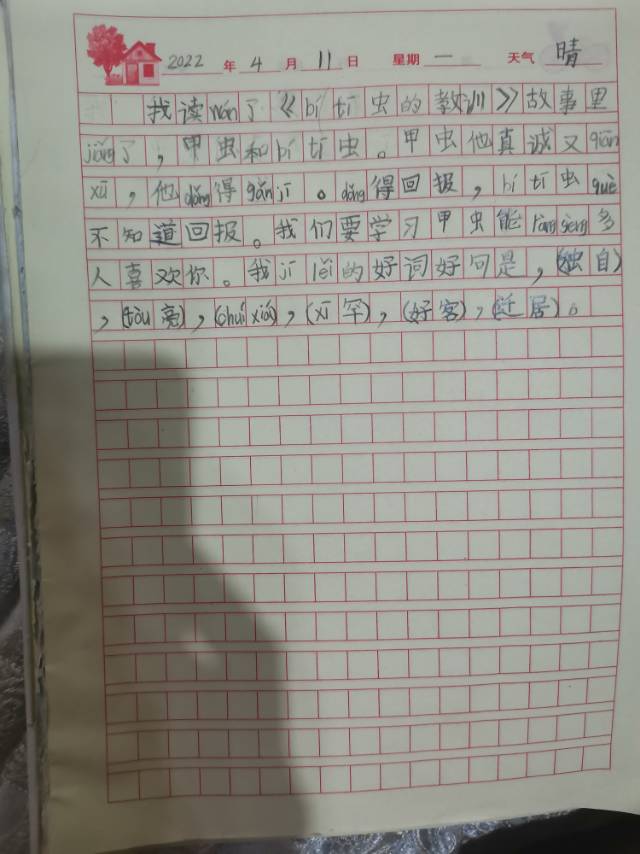 2022 年 4 月 11 日 星期 一 天气 晴
我读wán了《bí tì 虫的教训》故事里
jiǎng了,甲虫和bí tì虫。甲虫他真诚又qiān
xū,他dǒng得gǎn jī。dǒng得回报,bí tì虫què
不知道回报。我们要学习甲虫能ràng gèng多
人喜欢你。我jī lěi的好词好句是,(独自)
,(tòu亮),(chuí xià),(xī罕),(好客),(迁居)。